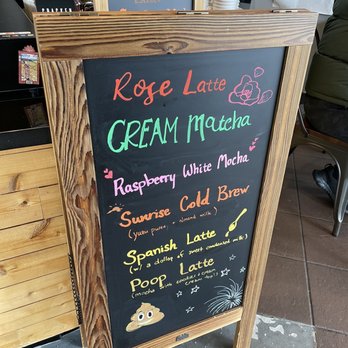 Rose Latte
CREAM Matcha
Raspberry White Mocha
Sunrise Cold Brew
(yuzu puree + almond milk)
Spanish Latte
(w/ a dollop of sweet condensed milk)
Poop Latte
(mocha with cookies & cream
cream top!)